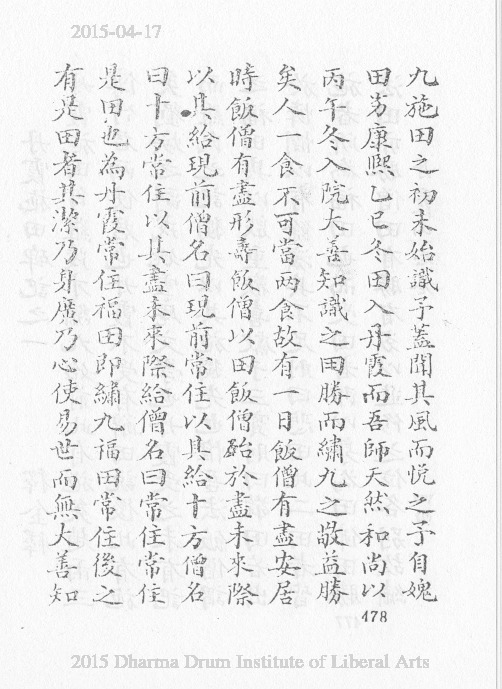 2015-04-17
九施田之初未始識予蓋聞其風而悦之予自媿
田方康熙乙巳冬田入丹霞而吾師天然和尚以
丙午冬入院大善知識之田勝而繡九之敬益勝
矣人一食不可當两食故有一日飯僧有盡安居
時飯僧有盡形壽飯僧以田飯僧殆於盡未來際
以其給現前僧名曰現前常住以其給十方僧名
曰十方常住以其盡未來際給僧名曰常住常住
是田也為丹霞常住福田即繡九福田常住後之
有是田者其潔乃身廣乃心使易世而無大善知
478
2015 Dharma Drum Institute of Liberal Arts